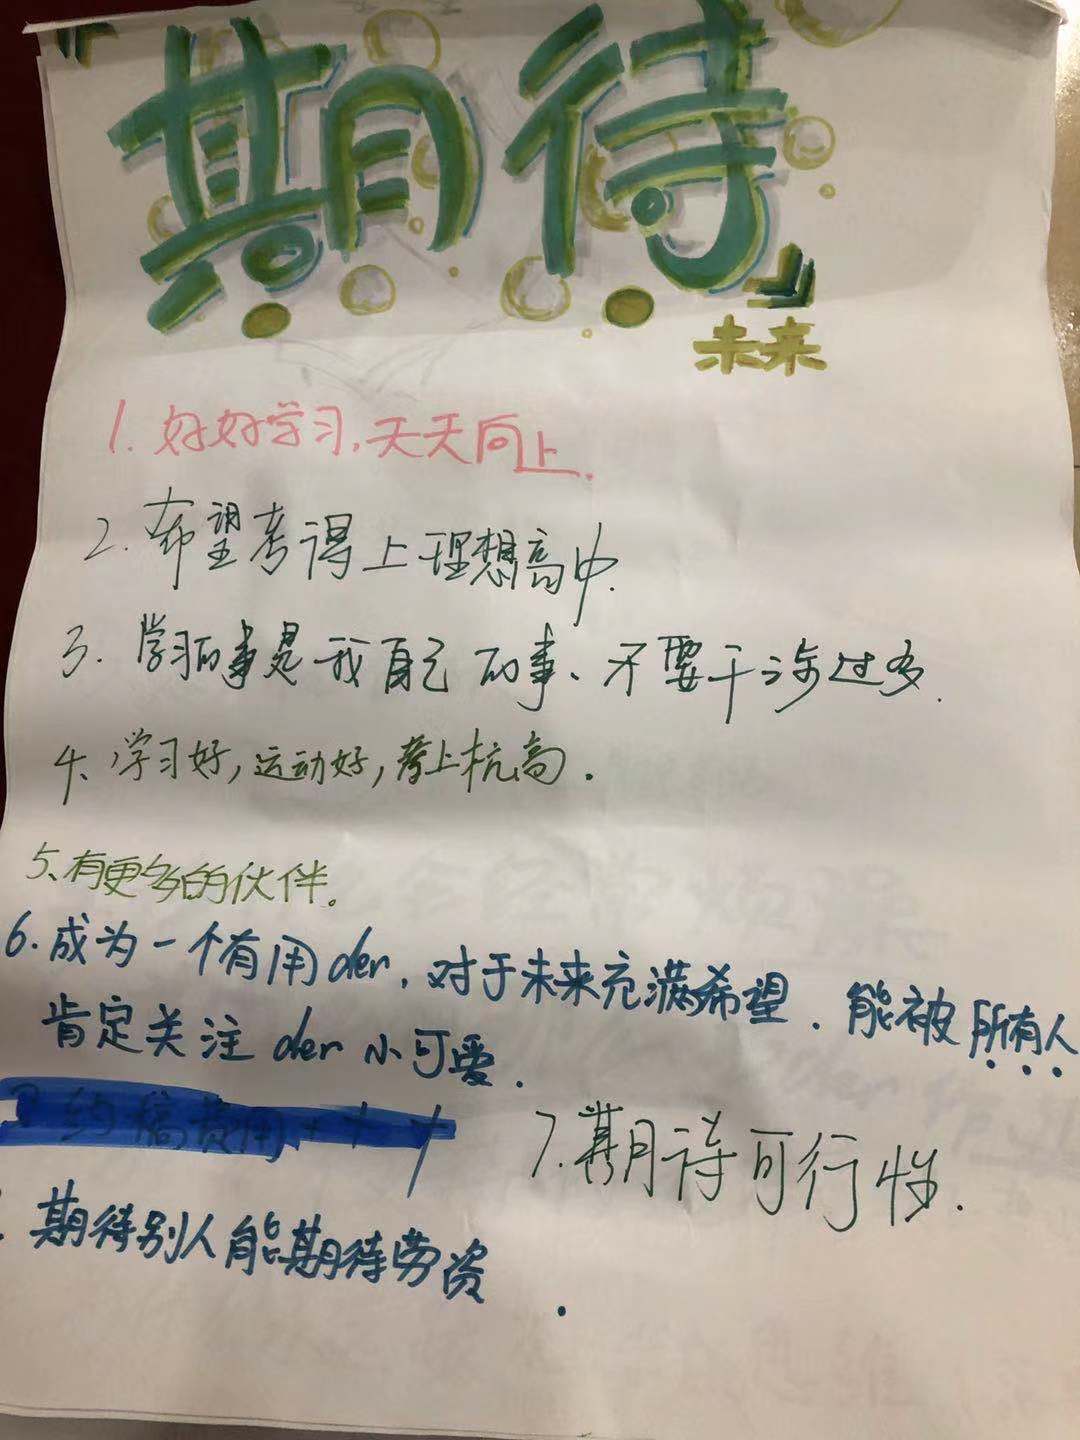 《期待》
未来
1. 好好学习，天天向上.
2. 希望考得上理想高中.
3. 学习的事是我自己的事、不要干涉过多.
4、学习好，运动好，考上杭高.
5、有更多的伙伴。
6. 成为一个有用der，对于未来充满希望. 能被所有人
肯定关注der小可爱.
7. 期待可行性.
期待别人能期待劳资.